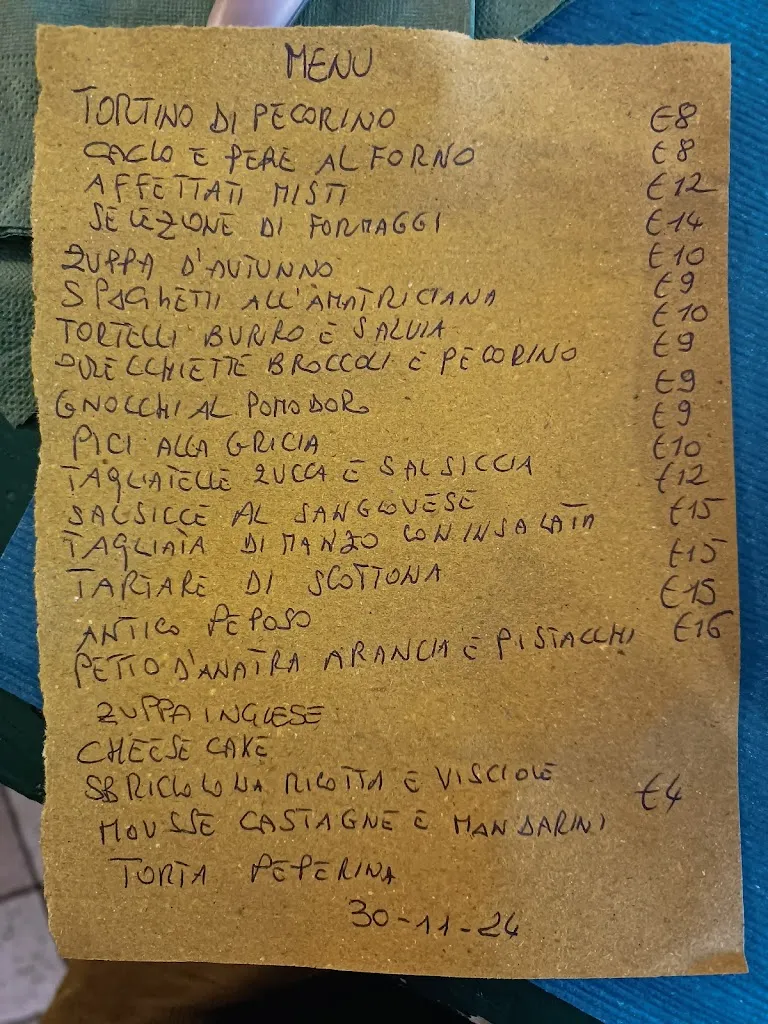 MENU
TORTINO DI PECORINO €8
CACIO E PERE AL FORNO €8
AFFETTATI MISTI €12
SELEZIONE DI FORMAGGI €14
ZUPPA D'AUTUNNO €10
SPAGHETTI ALL'AMATRICIANA €9
TORTELLI BURRO E SALVIA €10
ORECCHIETTE BROCCOLI E PECORINO €9
GNOCCHI AL POMODORO €9
PICI ALLA GRICIA €9
TAGLIATELLE ZUCCA E SALSICCIA €10
SALSICCE AL SANGIOVESE €12
TAGLIATA DI MANZO CON INSALATA €15
TARTARE DI SCOTTONA €15
ANTICO PEPOSO €15
PETTO D'ANATRA ARANCIA E PISTACCHI €16
ZUPPA INGLESE
CHEESE CAKE
SBRICIOLONA RICOTTA E VISCIOLE €4
MOUSSE CASTAGNE E MANDARINI
TORTA PEPERINA
30-11-24